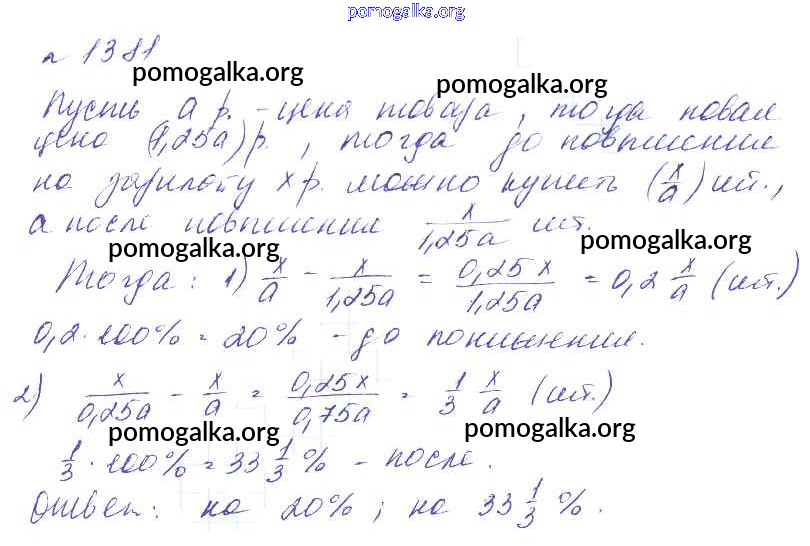 pomogalka.org
№ 1381
pomogalka.org
pomogalka.org
Пусть a р. - цена товара, тогда новая
цена (1,25a) р., тогда до повышения
на зарплату x р. можно купить (x/a) шт.,
а после повышения x/1,25a шт.
pomogalka.org
pomogalka.org
Тогда: 1) x/a - x/1,25a = 0,25x/1,25a = 0,2 x/a (шт.)
0,2 · 100% = 20% - до понижения.
2) x/0,25a - x/a = 0,25x/0,75a = 1/3 x/a (шт.)
pomogalka.org
pomogalka.org
1/3 · 100% = 33 1/3 % - после.
Ответ: на 20%; на 33 1/3 %.